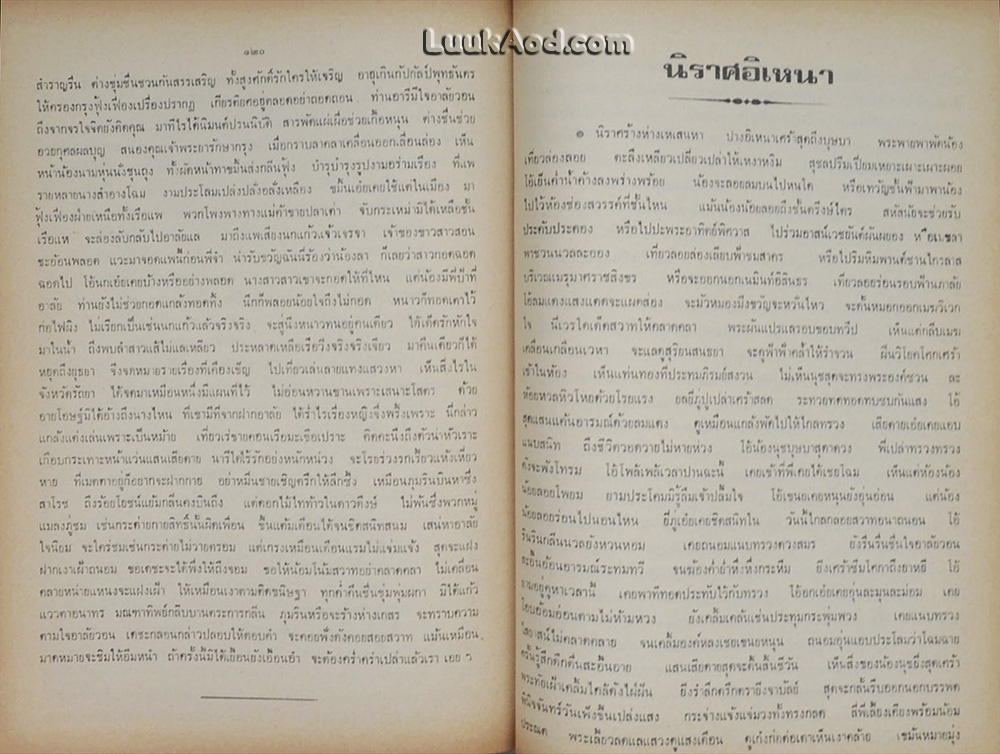 LuukAod.com
๑๒๐
สำราญรื่น ต่างชุ่มชื่นชวนกันสรรเสริญ ทั้งสูงศักดิ์รักใคร่ให้เจริญ อายุเกินกัปกัลป์พุทธันดร
ให้ครองกรุงฟุ้งเฟื่องเปรื่องปรากฏ เกียรติยศอยู่ตลอดอย่าถอดถอน ท่านอารีมีใจอาลัยวอน
ถึงจากจรใจจิตยังคิดคุณ มาทีไรได้นิมนต์ปรนนิบัติ สารพัดแผ่เผื่อช่วยเกื้อหนุน ต่างชื่นช่วย
อวยกุศลผลบุญ สนองคุณเจ้าพระยารักษากรุง เมื่อกราบลาคลาเคลื่อนออกเลื่อนล่อง เห็น
หน้าน้องนามหุ่นนั่งชุนถุง ทั้งผัดหน้าทาขมิ้นส่งกลิ่นฟุ้ง บำรุงบำรุงรูปงามอร่ามเรือง ที่แพ
รายหลายนางสำอางโฉม งามประโลมเปล่งปลั่งอลั่งเหลือง ขมิ้นเอ๋ยเคยใช้แต่ในเมือง มา
ฟุ้งเฟื่องฝ่ายเหนือทั้งเรือแพ พวกโพงพางทางแม่ค้าขายปลาเต่า จับกระเหม่ามิได้เหลือชั้น
เรือแห จะล่องลับกลับไปอาลัยแล มาถึงแพเสียงนกแก้วแจ้วเจรจา เจ้าของขาวสาวสอน
ชะอ้อนพลอด แวะมาจอดแพนี้ก่อนพี่จ๋า น่ารับขวัญฉันนี่ร้องว่าน้องลา ก็เลยว่าสาวกอดฉอด
ฉอดไป โอ้นกเอ๋ยเคยบ้างหรือย่างพลอด นางสาวสาวเขาจะกอดให้ที่ไหน แต่น้องมีพี่ป้าที่
อาลัย ท่านยังไม่ช่วยกอดแกล้งทอดทิ้ง นึกก็พลอยน้อยใจถึงไม่กอด หนาวก็ทอดเตาไว้
ก่อไฟผิง ไม่เรียกเป็นเช่นนกแก้วแล้วจริงจริง จะสู้นิ่งหนาวทนอยู่คนเดียว ได้เด็ดรักหักใจ
มาในน้ำ ถึงพบลำสาวแส้ไม่แลเหลียว ประหลาดเหลือเรือวิ่งจริงจริงเจียว มาคืนเดียวก็ได้
หยุดถึงอยุธยา จึงจดหมายรายเรื่องที่เคืองเข็ญ ไปเที่ยวเล่นลายแทงแสวงหา เห็นสิ่งไรใน
จังหวัดรัถยา ได้จดมาเหมือนหนึ่งมีแผนที่ไว้ ไม่อ่อนหวานขานเพราะเสนาะโสตร ด้วย
อายโอษฐ์มิได้อ้างถึงนางไหน ที่เขามีที่จากฝากอาลัย ได้ร่ำไรเรื่องหญิงจึงพริ้งเพราะ นี่กล่าว
แกล้งแต่งเล่นเพราะเป็นหม้าย เที่ยวเร่ขายคอนเรือมะเขือเปราะ คิดคะนึงถึงตัวน่าหัวเราะ
เกือบกระเทาะหน้าแว่นแสนเสียดาย นารีใดไร้รักอย่างหนักหน่วง จะโรยร่วงรกเรี้ยวแห้งเหี่ยว
หาย ที่เมตตาอยู่ก็อยากจะฝากกาย อย่าหมิ่นชายเชิญตรึกให้ลึกซึ้ง เหมือนภุมรินบินหาซึ่ง
สาโรช ถึงร้อยโยชน์แย้มกลิ่นคงบินถึง แต่ดอกไม้ไทท้าวในดาวดึงษ์ ไม่พ้นซึ่งพวกหมู่
แมลงภู่ชม เช่นกระต่ายกายสิทธิ์นั้นผิดเพื่อน ขึ้นแต้มเดือนได้จนชิดสนิทสนม เสน่หาอาลัย
ใจนิยม จะใคร่ชมเช่นกระต่ายไม่วายตรอม แต่เกรงเหมือนเดือนแรมไม่แจ่มแจ้ง สุดจะแฝง
ฝากเงาเฝ้าถนอม ขอเดชะจะได้พึ่งให้ถึงจอม ขอให้น้อมโน้มสวาทอย่าคลาดคลา ไม่เคลื่อน
คลายหน่ายแหนงจะแฝงเฝ้า ให้เหมือนเงาตามติดขนิษฐา ทุกค่ำคืนชื่นชุ่มพุ่มผกา มิได้แก้ว
แววตาอนาทร มณฑาทิพย์กลีบบานตระการกลิ่น ภุมรินหรือจะร้างห่างเกสร จะทราบความ
ตามใจอาลัยวอน เดชะกลอนกล่าวปลอบให้ตอบคำ จะคอยฟังดังคอยสอยสวาท แม้นเหมือน
มาดหมายจะชิมให้อิ่มหนำ ถ้าครั้งนี้มิได้เยื้อนยังเอื้อนอำ จะต้องคร่ำคร่าเปล่าแล้วเรา เอย ฯ
นิราศอิเหนา
๏ นิราศร้างห่างเหเสนหา ปางอิเหนาเศร้าสุดถึงบุษบา พระพายพาพัดน้อง
เที่ยวล่องลอย ตะลึงเหลียวเปลี่ยวเปล่าให้เหงาหงิม สุชลปริ่มเปี่ยมเหยาะเผาะเผาะผอย
โอ้เย็นค่ำน้ำค้างลงพร่างพร้อย น้องจะลอยลมบนไปหนใด หรือเทวัญชั้นฟ้ามาพาน้อง
ไปไว้ห้องช่องสวรรค์ที่ชั้นไหน แม้นน้องน้อยลอยถึงชั้นตรึงษ์ไตร สหัสนัยจะช่วยรับ
ประคับประคอง หรือไปปะพระอาทิตย์พิศวาส ไปร่วมอาสน์เวชยันต์ผันผยอง หรือเมขลา
พาชวนนวลละออง เที่ยวลอยล่องเลียบฟ้าชมสาคร หรือไปริมหิมพานต์ชานไกรลาส
บริเวณเมรุมาศราชสิงขร หรือจะออกนอกเนมินท์อิสินธร เที่ยวลอยร่อนรอบฟ้านภาลัย
โอ้ลมแดงแสงแดดจะแผดส่อง จะมัวหมองมิ่งขวัญจะหวั่นไหว จะดั้นหมอกออกเมฆวิเวก
ใจ นี่เวรใดเด็ดสวาทให้คลาดคลา พระผันแปรแลรอบขอบทวีป เห็นแต่กลีบเมฆ
เคลื่อนเกลื่อนเวหา จะแลดูสุริยนสนธยา จะดูฟ้าฟ้าคล้ำให้รำจวน ฝืนวิโยคโศกเศร้า
เข้าในห้อง เห็นแท่นทองที่ประทมภิรมย์สงวน ไม่เห็นนุชสุดจะทรงพระองค์ซวน ละ
ห้อยหวลหิวโหยด้วยโรยแรง ยลยี่ภู่ปูเปล่าเศร้าสลด ระทวยทดทอดทบซบกันแสง โอ้
สุดแสนแค้นอารมณ์ด้วยลมแดง ดูเหมือนแกล้งพัดไปให้ไกลทรวง เสียดายเอ๋ยเคยแอบ
แนบสนิท ถึงชีวิตวอดวายไม่หายห่วง โอ้น้องนุชบุษบาสุดาดวง พี่เปล่าทรวงทรวง
ดังจะพังโทรม โอ้โพล้เพล้เวลาปานฉะนี้ เคยเข้าที่พี่เคยได้เชยโฉม เห็นแต่ห้องน้อง
น้อยลอยโพยม ยามประโคมมิรู้ลืมเจ้าปลื้มใจ โอ้เชนยเคยหนุนยังอุ่นอ่อน แต่น้อง
น้อยลอยร่อนไปนอนไหน ยี่ภู่เอ๋ยเคยชิดสนิทใน วันนี้ไกลกลอยสวาทอนาถนอน โอ้
รินรินกลิ่นนวลยังหวนหอม เคยถนอมแนบทรวงดวงสมร ยังรื่นรื่นชื่นใจอาลัยวอน
สะอื้นอ้อนอารมณ์ระทมทวี จนฆ้องค่ำย่ำหึ่งหึ่งกระหึม ยิ่งเศร้าซึมโศกาถึงยาหยี โอ้
ยามอยู่คูหาเวลานี้ เคยพาทีทอดประทับไว้กับทรวง โอ้อกเอ๋ยเคยอุ่นละมุนละม่อม เคย
โอบอ้อมอ่อนตามไม่ห้ามหวง ยังเคลิ้มเคล้นเช่นประทุมกระพุ่มพวง เคยแนบทรวง
ไสยาสน์ไม่คลาดคลาย จนเคลิ้มองค์หลงเชยเขนยหนุน ถนอมอุ่นแอบประโลมว่าโฉมฉาย
ครั้นรู้สึกดึกดื่นสะอื้นอาย แสนเสียดายสุดจะดิ้นสิ้นชีวัน เห็นสิ่งของน้องนุชยิ่งสุดเศร้า
พระทัยเฝ้าเคลิ้มไคล้ดังไฝ่ฝัน ยิ่งรำลึกตรึกตรายิ่งจาบัลย์ สุดจะกลั้นรีบออกนอกบรรพต
พินิจจันทร์วันเพ็งขึ้นเปล่งแสง กระจ่างแจ้งแจ่มวงทั้งทรงกลด สี่พี่เลี้ยงเคียงพร้อมน้อม
ประณต พระเลี้ยวลดแลแสวงดูแสงเดือน ดูเก๋งก่อต่อเตาเห็นเงาคล้าย เขม้นหมายมุ่ง